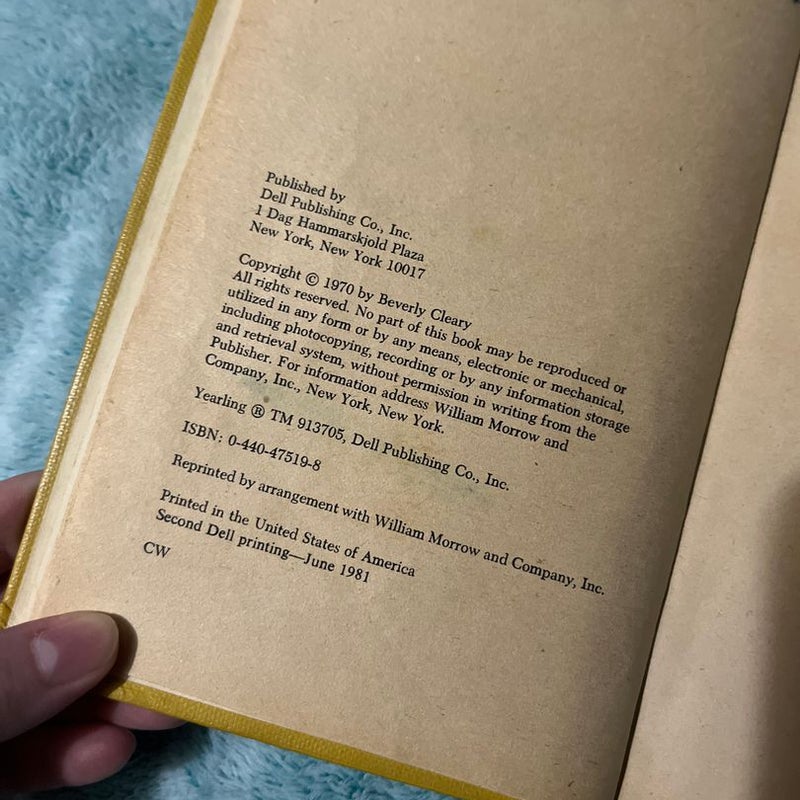 Published by
Dell Publishing Co., Inc.
1 Dag Hammarskjold Plaza
New York, New York 10017
Copyright © 1970 by Beverly Cleary
All rights reserved. No part of this book may be reproduced or
utilized in any form or by any means, electronic or mechanical,
including photocopying, recording or by any information storage
and retrieval system, without permission in writing from the
Publisher. For information address William Morrow and
Company, Inc., New York, New York.
Yearling ® TM 913705, Dell Publishing Co., Inc.
ISBN: 0-440-47519-8
Reprinted by arrangement with William Morrow and Company, Inc.
Printed in the United States of America
Second Dell printing—June 1981
CW